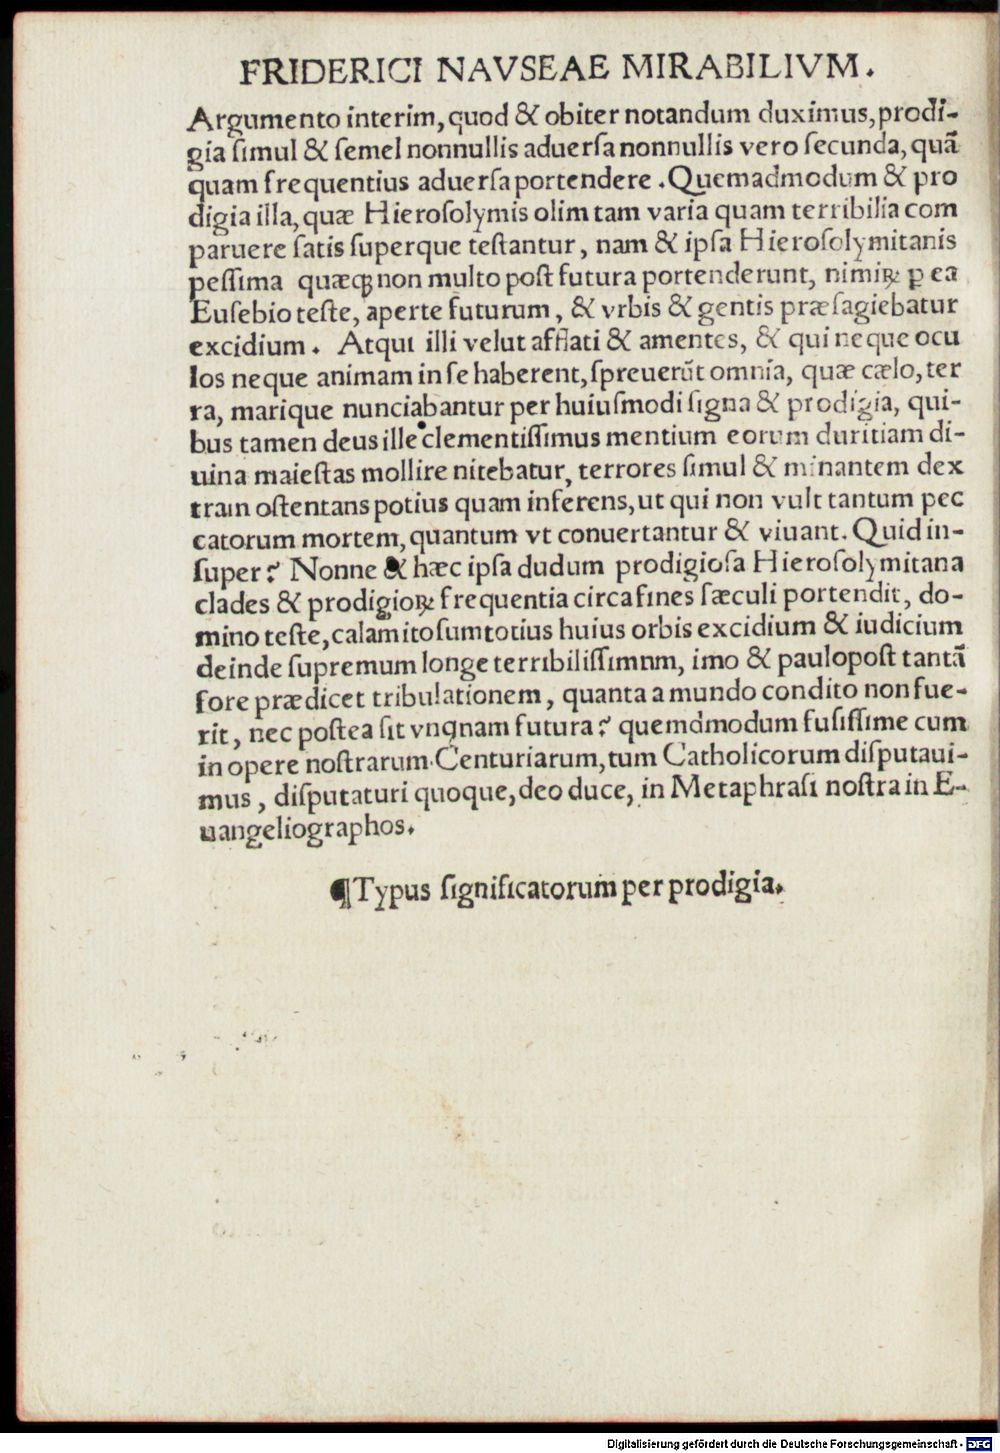 FRIDERICI NAVSEAE MIRABILIVM.
Argumento interim, quod & obiter notandum duximus, prodi-
gia ſimul & ſemel nonnullis aduerſa nonnullis vero ſecunda, quã
quam frequentius aduerſa portendere. Quemadmodum & pro
digia illa, quæ Hieroſolymis olim tam varia quam terribilia com
paruere ſatis ſuperque teſtantur, nam & ipſa Hieroſolymitanis
peſſima quæqꝫ non multo poſt futura portenderunt, nimiꝝ ꝑ ea
Euſebio teſte, aperte futurum, & vrbis & gentis præſagiebatur
excidium. Atqui illi velut afflati & amentes, & qui neque ocu
los neque animam in ſe haberent, ſpreuerũt omnia, quæ cælo, ter
ra, marique nunciabantur per huiuſmodi ſigna & prodigia, qui-
bus tamen deus ille clementiſſimus mentium eorum duritiam di-
uina maieſtas mollire nitebatur, terrores ſimul & minantem dex
tram oſtentans potius quam inferens, ut qui non vult tantum pec
catorum mortem, quantum vt conuertantur & viuant. Quid in-
ſuper? Nonne & hæc ipſa dudum prodigioſa Hieroſolymitana
clades & prodigioꝝ frequentia circa fines ſæculi portendit, do-
mino teſte, calamitoſum totius huius orbis excidium & iudicium
deinde ſupremum longe terribiliſſimnm, imo & paulopoſt tantã
fore prædicet tribulationem, quanta a mundo condito non fue-
rit, nec poſtea ſit vnqnam futura? quemdmodum fuſiſſime cum
in opere noſtrarum Centuriarum, tum Catholicorum diſputaui-
mus, diſputaturi quoque, deo duce, in Metaphraſi noſtra in E-
uangeliographos.
¶Typus ſignificatorum per prodigia.
Digitalisierung gefördert durch die Deutsche Forschungsgemeinschaft - DFG